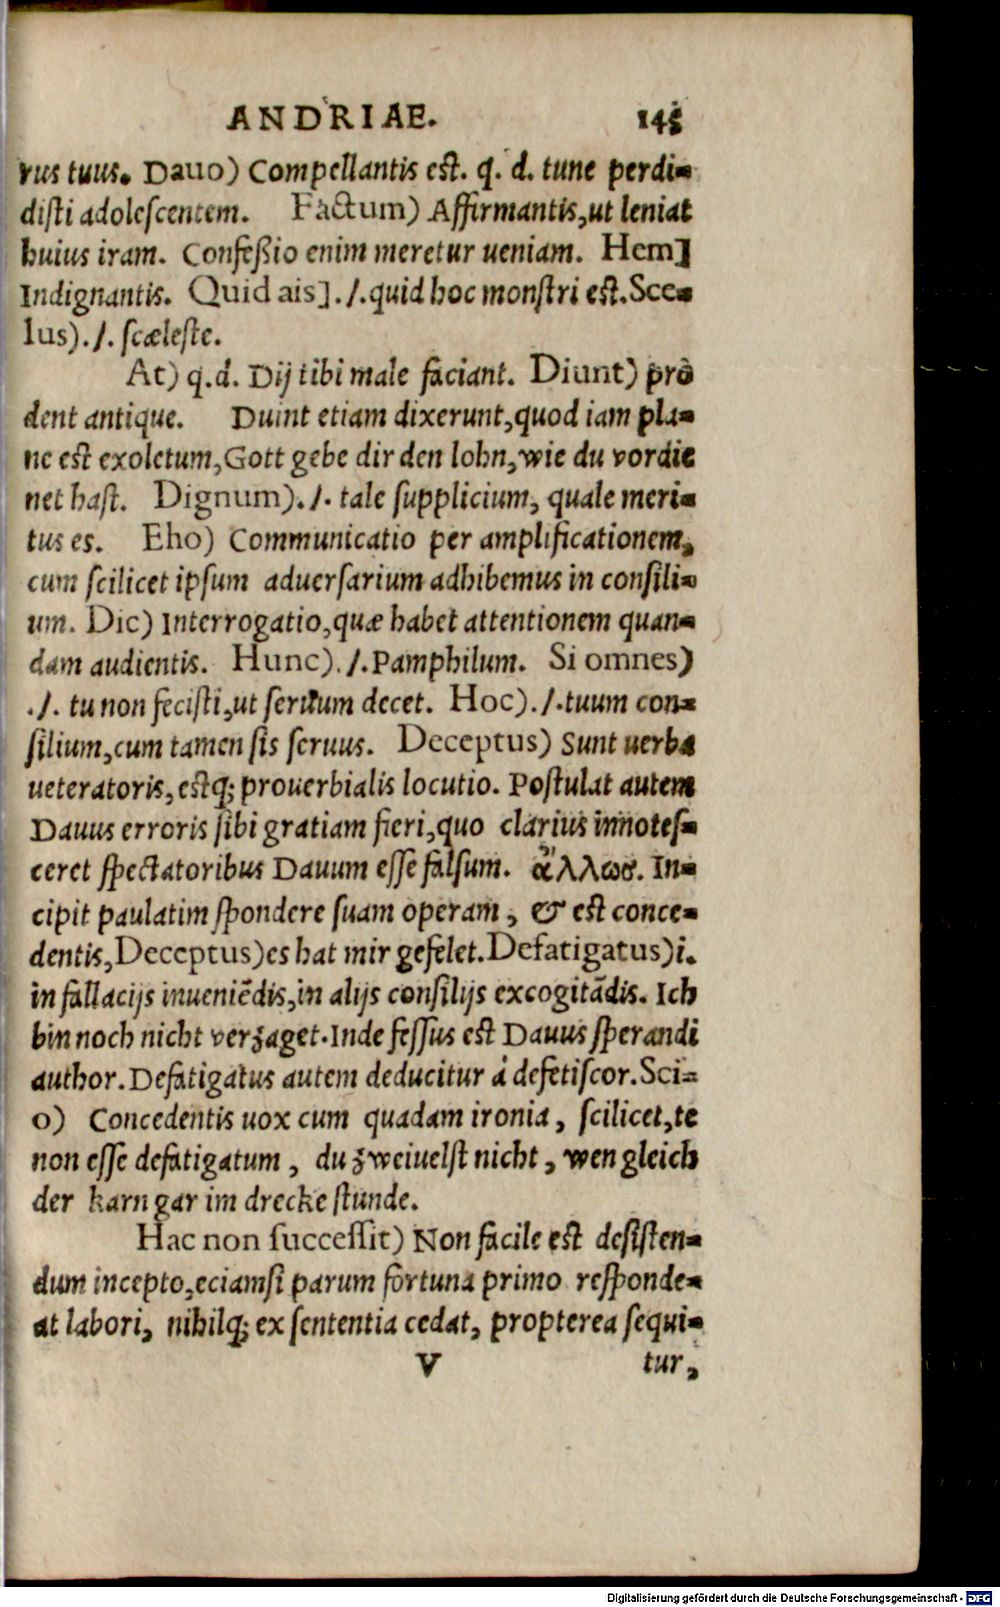 ANDRIAE. 145
rus tuus. Dauo) Compellantis est. q. d. tune perdi-
disti adolescentem. Factum) Affirmantis, ut leniat
huius iram. Confeßio enim meretur ueniam. Hem]
Indignantis. Quid ais]. /. quid hoc monstri est. Sce-
lus). /. scæleste.
At) q.d. Dij tibi male faciant. Diunt) prò
dent antique. Duint etiam dixerunt, quod iam pla-
ne est exoletum, Gott gebe dir den lohn, wie du vordie
net hast. Dignum). /. tale supplicium, quale meri-
tus es. Eho) Communicatio per amplificationem,
cum scilicet ipsum aduersarium adhibemus in consili-
um. Dic) Interrogatio, quæ habet attentionem quan-
dam audientis. Hunc). /. Pamphilum. Si omnes)
. /. tu non fecisti, ut seruum decet. Hoc). /. tuum con-
silium, cum tamen sis seruus. Deceptus) Sunt uerba
ueteratoris, estq; prouerbialis locutio. Postulat autem
Dauus erroris sibi gratiam fieri, quo clarius innotes-
ceret spectatoribus Dauum esse falsum. ἄλλως. In-
cipit paulatim spondere suam operam, & est conce-
dentis, Deceptus) es hat mir gefelet. Defatigatus) i.
in fallacijs inueniẽdis, in alijs consilijs excogitãdis. Ich
bin noch nicht verzaget. Inde fessus est Dauus sperandi
author. Defatigatus autem deducitur à defetiscor. Sci-
o) Concedentis uox cum quadam ironia, scilicet, te
non esse defatigatum, du zweiuelst nicht, wen gleich
der karn gar im drecke stunde.
Hac non successit) Non facile est desisten-
dum incepto, eciamsi parum fortuna primo responde-
at labori, nihilq; ex sententia cedat, propterea sequi-
V tur,
Digitalisierung gefördert durch die Deutsche Forschungsgemeinschaft - DFG